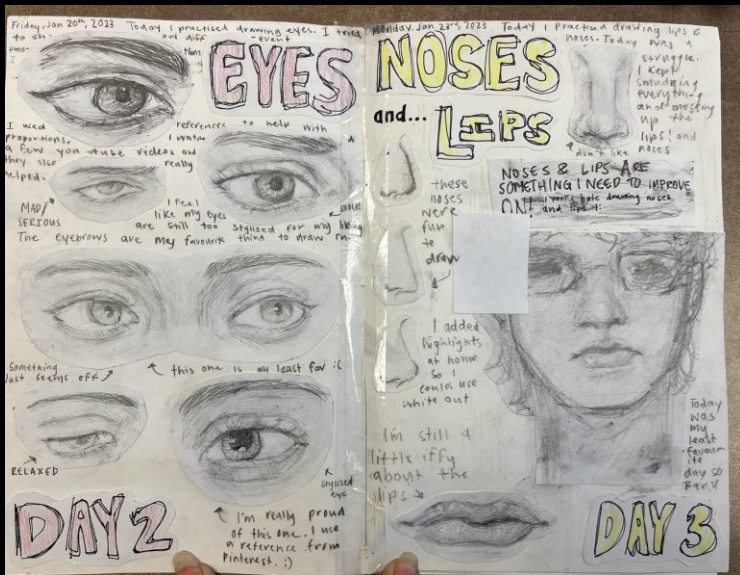 Friday, Jan 20th, 2023 Today I practised drawing eyes. I tried
to sh
out diff
event
EYES
I used
references to help with
proportions.
I watch
a few you tube videos and
they also
really
helped.
MAD/
SERIOUS
I feel
like my eyes
are still too stylized for my liking
The eyebrows are my favourite thing to draw rn
Something
just seems off
this one is my least fav :(
RELAXED
stylized
eye
I'm really proud
of this one. I use
a reference from
Pinterest. :)
DAY 2
Monday, Jan 23rd, 2023 Today I practised drawing lips &
noses. Today was a
struggle.
I kept
smudging
everything
and messing
up the
lips! and
noses
NOSES
and...
LIPS
didn't like
NOSES & LIPS ARE
SOMETHING I NEED TO IMPROVE
ON! I really hate drawing noses
and lips
these
noses
were
fun
to
draw
I added
highlights
at home
so I
could use
white out
I'm still a
little iffy
about the
lips
Today
was
my
least
favour
ite
day so
far
DAY 3